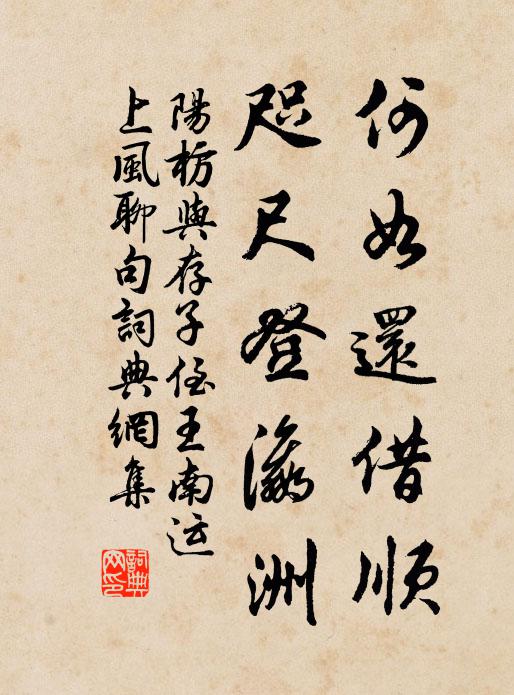 何如還借順
咫尺登瀛洲
陽枋與存子侄王南运
上風聊句詞典網集
詞典
网印